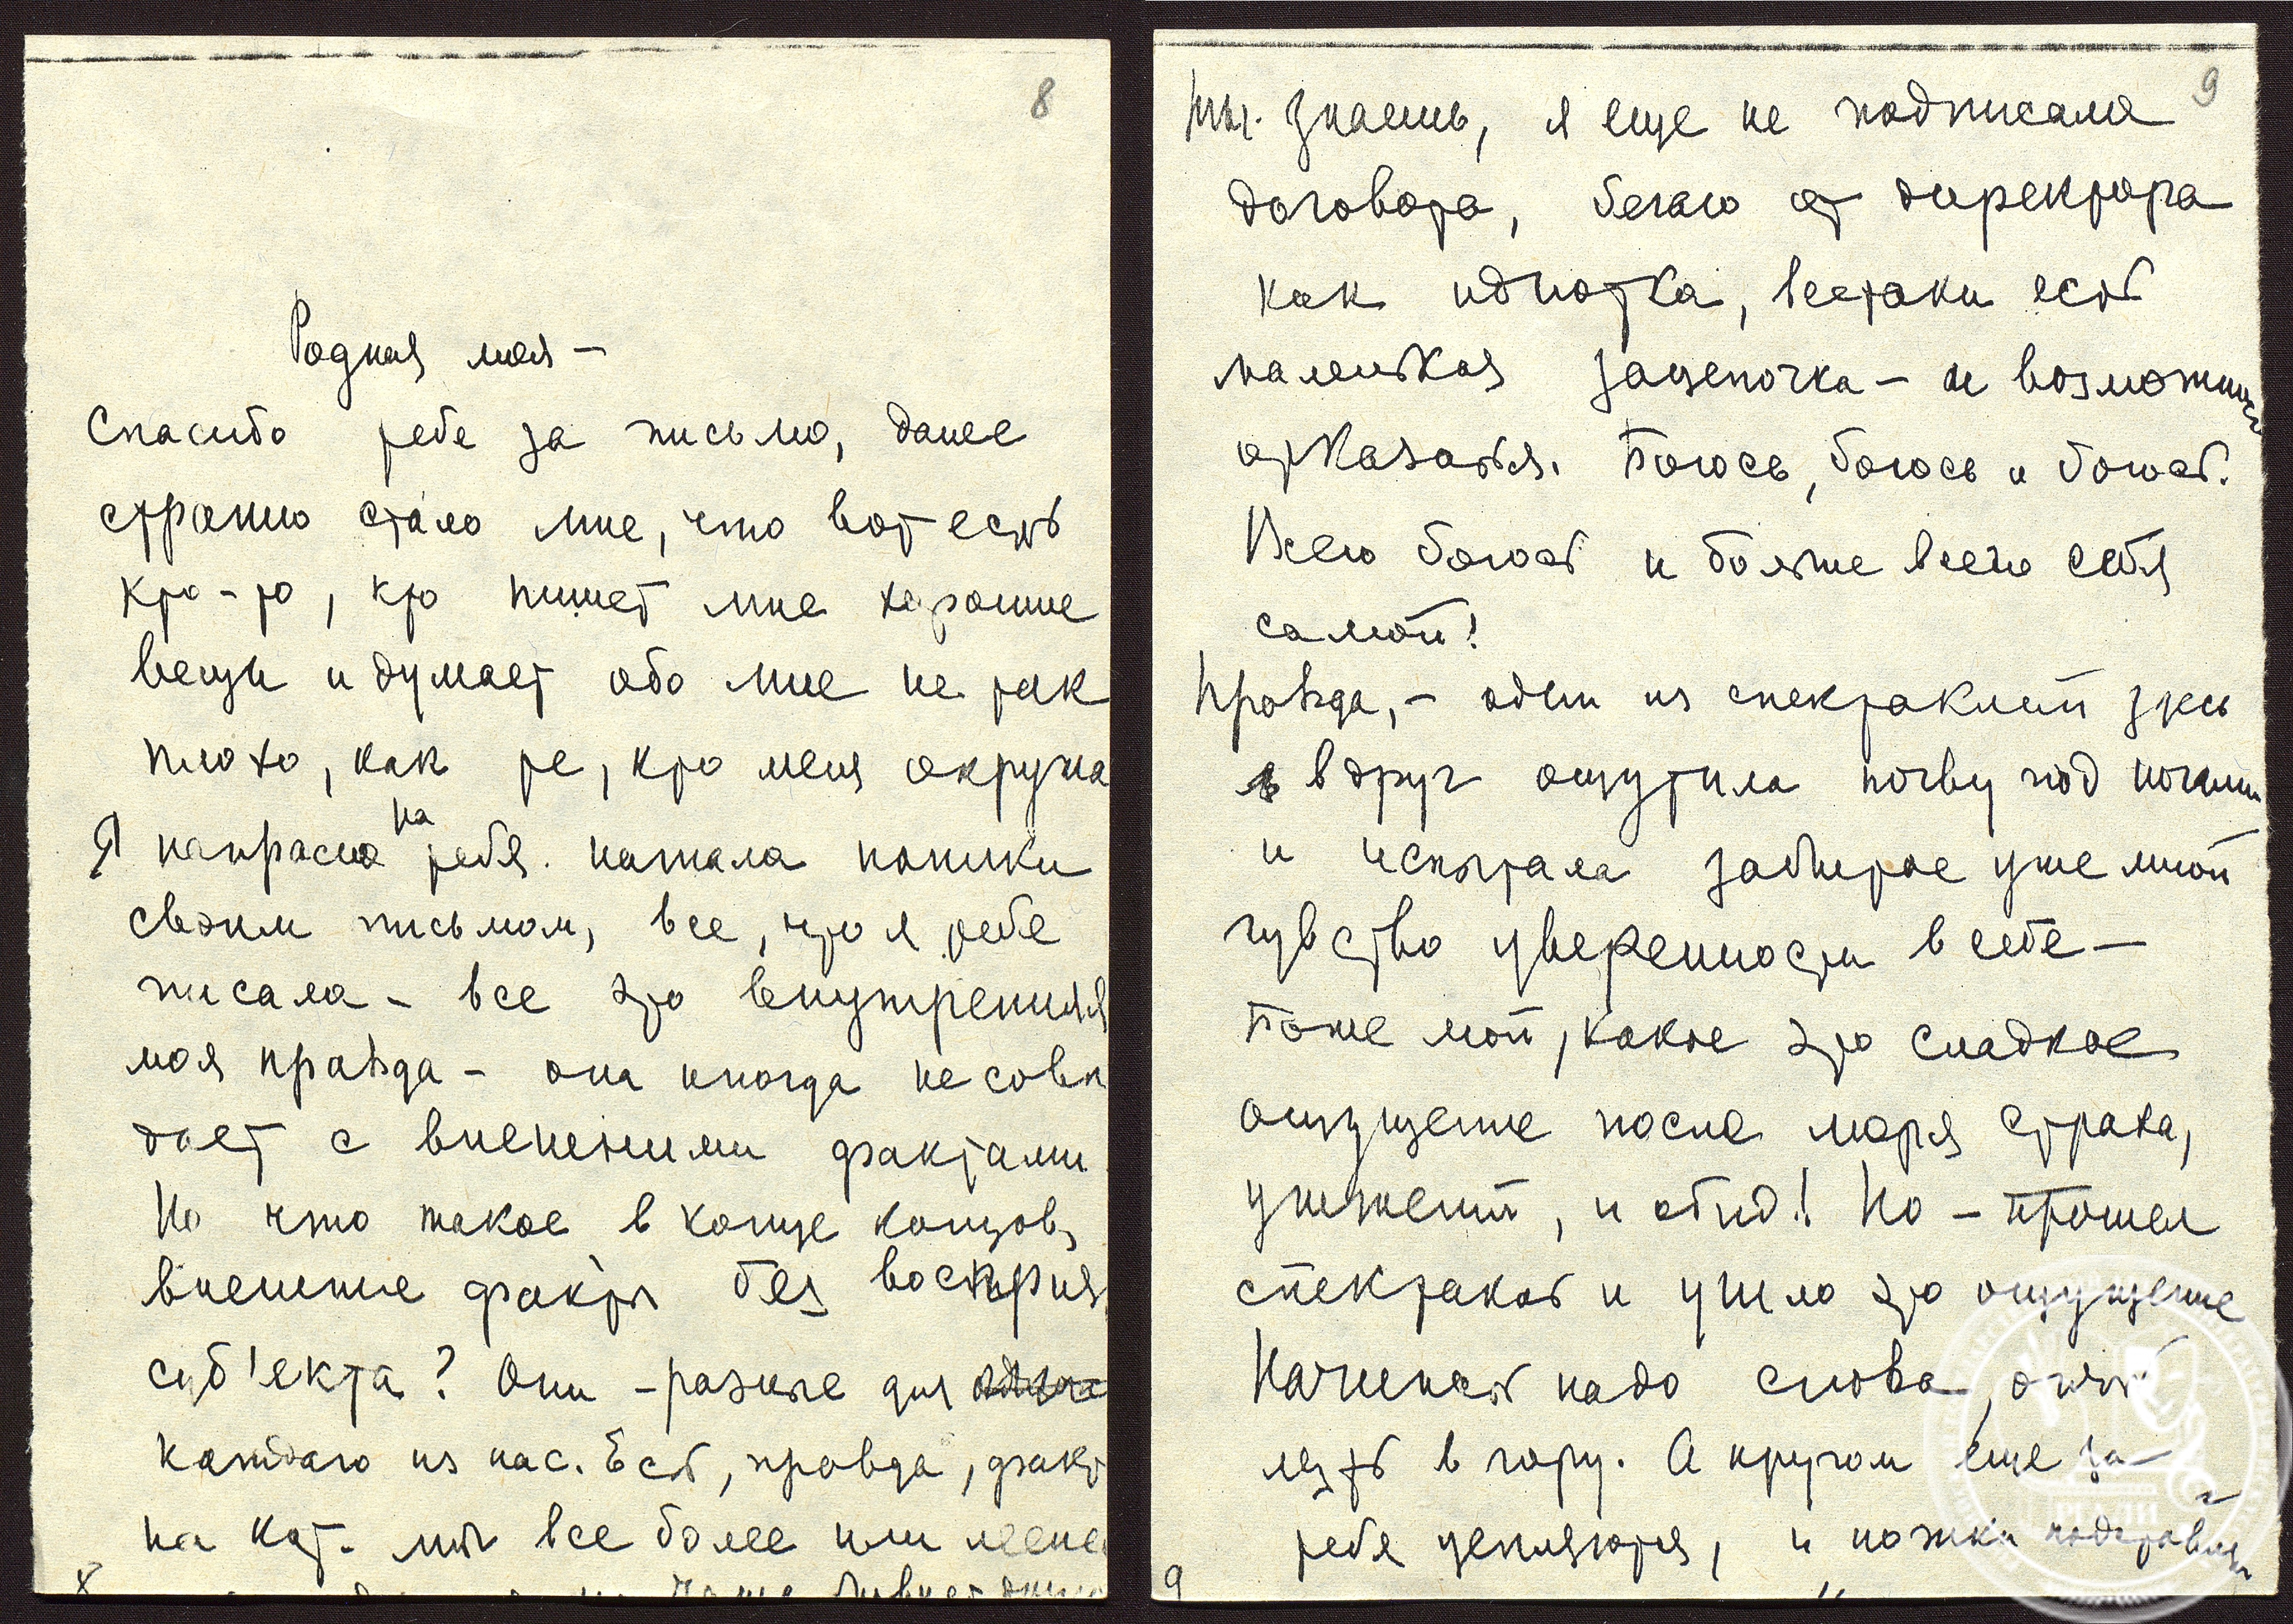 8
Родная моя –
Спасибо тебе за письмо, даже
странно стало мне, что вот есть
кто-то, кто пишет мне хорошие
вещи и думает обо мне не так
плохо, как те, кто меня окружа
Я напрасно на тебя нажала паники
своим письмом, все, что я тебе
писала – все это внутренняя
моя правда – она иногда не совп
дает с внешними фактами
Но что такое в конце концов,
внешние факты без восприя
суб'екта? Они – разные для
каждого из нас. Есть, правда, факт
на кот. мы все более или менее
8
9
Ты знаешь, я еще не подписала
договора, бегаю от директора
как идиотка, всетаки есть
маленькая зацепочка – и возможность
отказаться. Боюсь, боюсь и боюсь.
Всего боюсь и больше всего себя
самой!
Правда, – один из спектаклей здесь
я вдруг ощутила почву под ногами
и испытала забытое уже мной
чувство уверенности в себе –
Боже мой, какое это сладкое
ощущение после моря страха,
унижений, и обид! Но – прошел
спектакль и ушло это ощущение
Начинать надо снова, опять
лезть в гору. А кругом еще за
тебя цепляются, и ножки подставляют
9